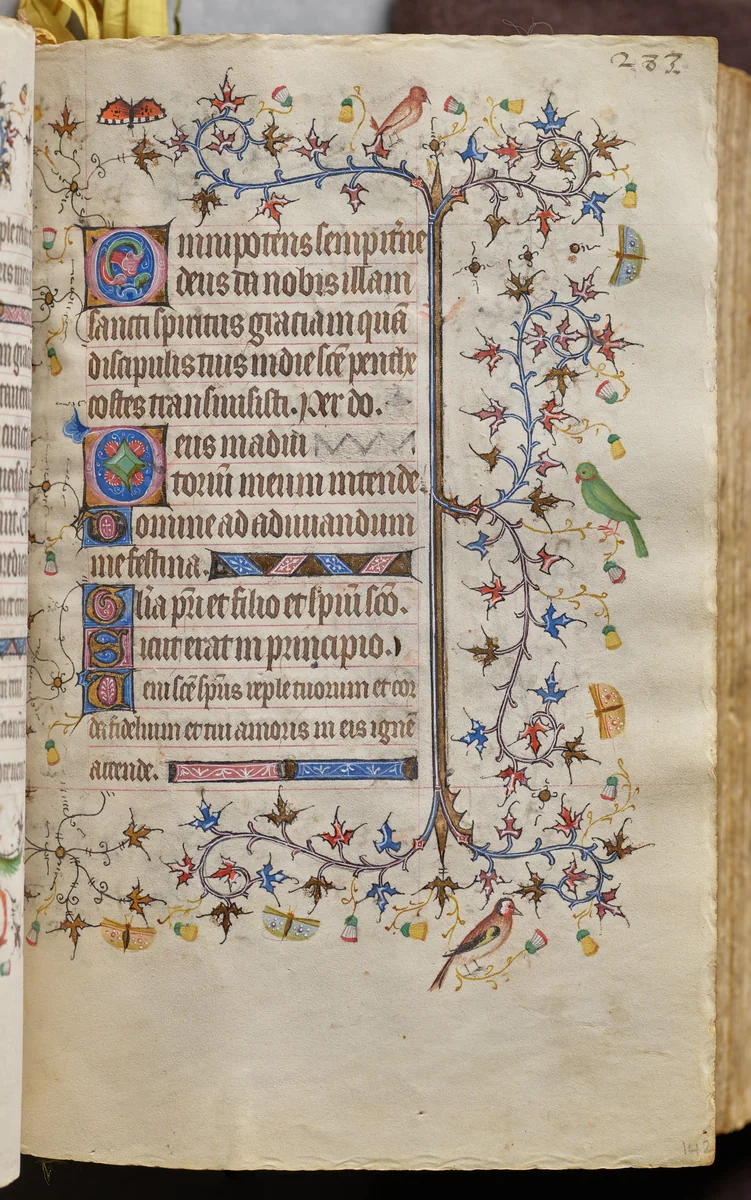 233
Omnipotens sempit̄ne
deus da nobis illam
sancti spiritus graciam quā
discipulis tuis in die sc̄e penthe
costes transmisisti. Per do.
Deus in adiu
toriū meum intende
Domine ad adiuuandum
me festina.
Gl̄ia pr̄i et filio et sp̄iui sc̄o.
Sicut erat in principio.
Ueni sc̄e sp̄us reple tuorum et cor
da fidelium et tui amoris in eis ignē
accende.
142